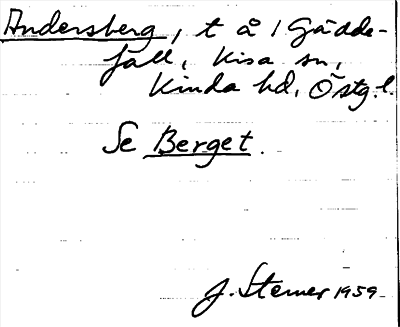 Andersberg, t å 1 Gädde-
fall, Kisa sn,
Kinda hd, Östg. l.
Se Berget.
J. Sterner 1959